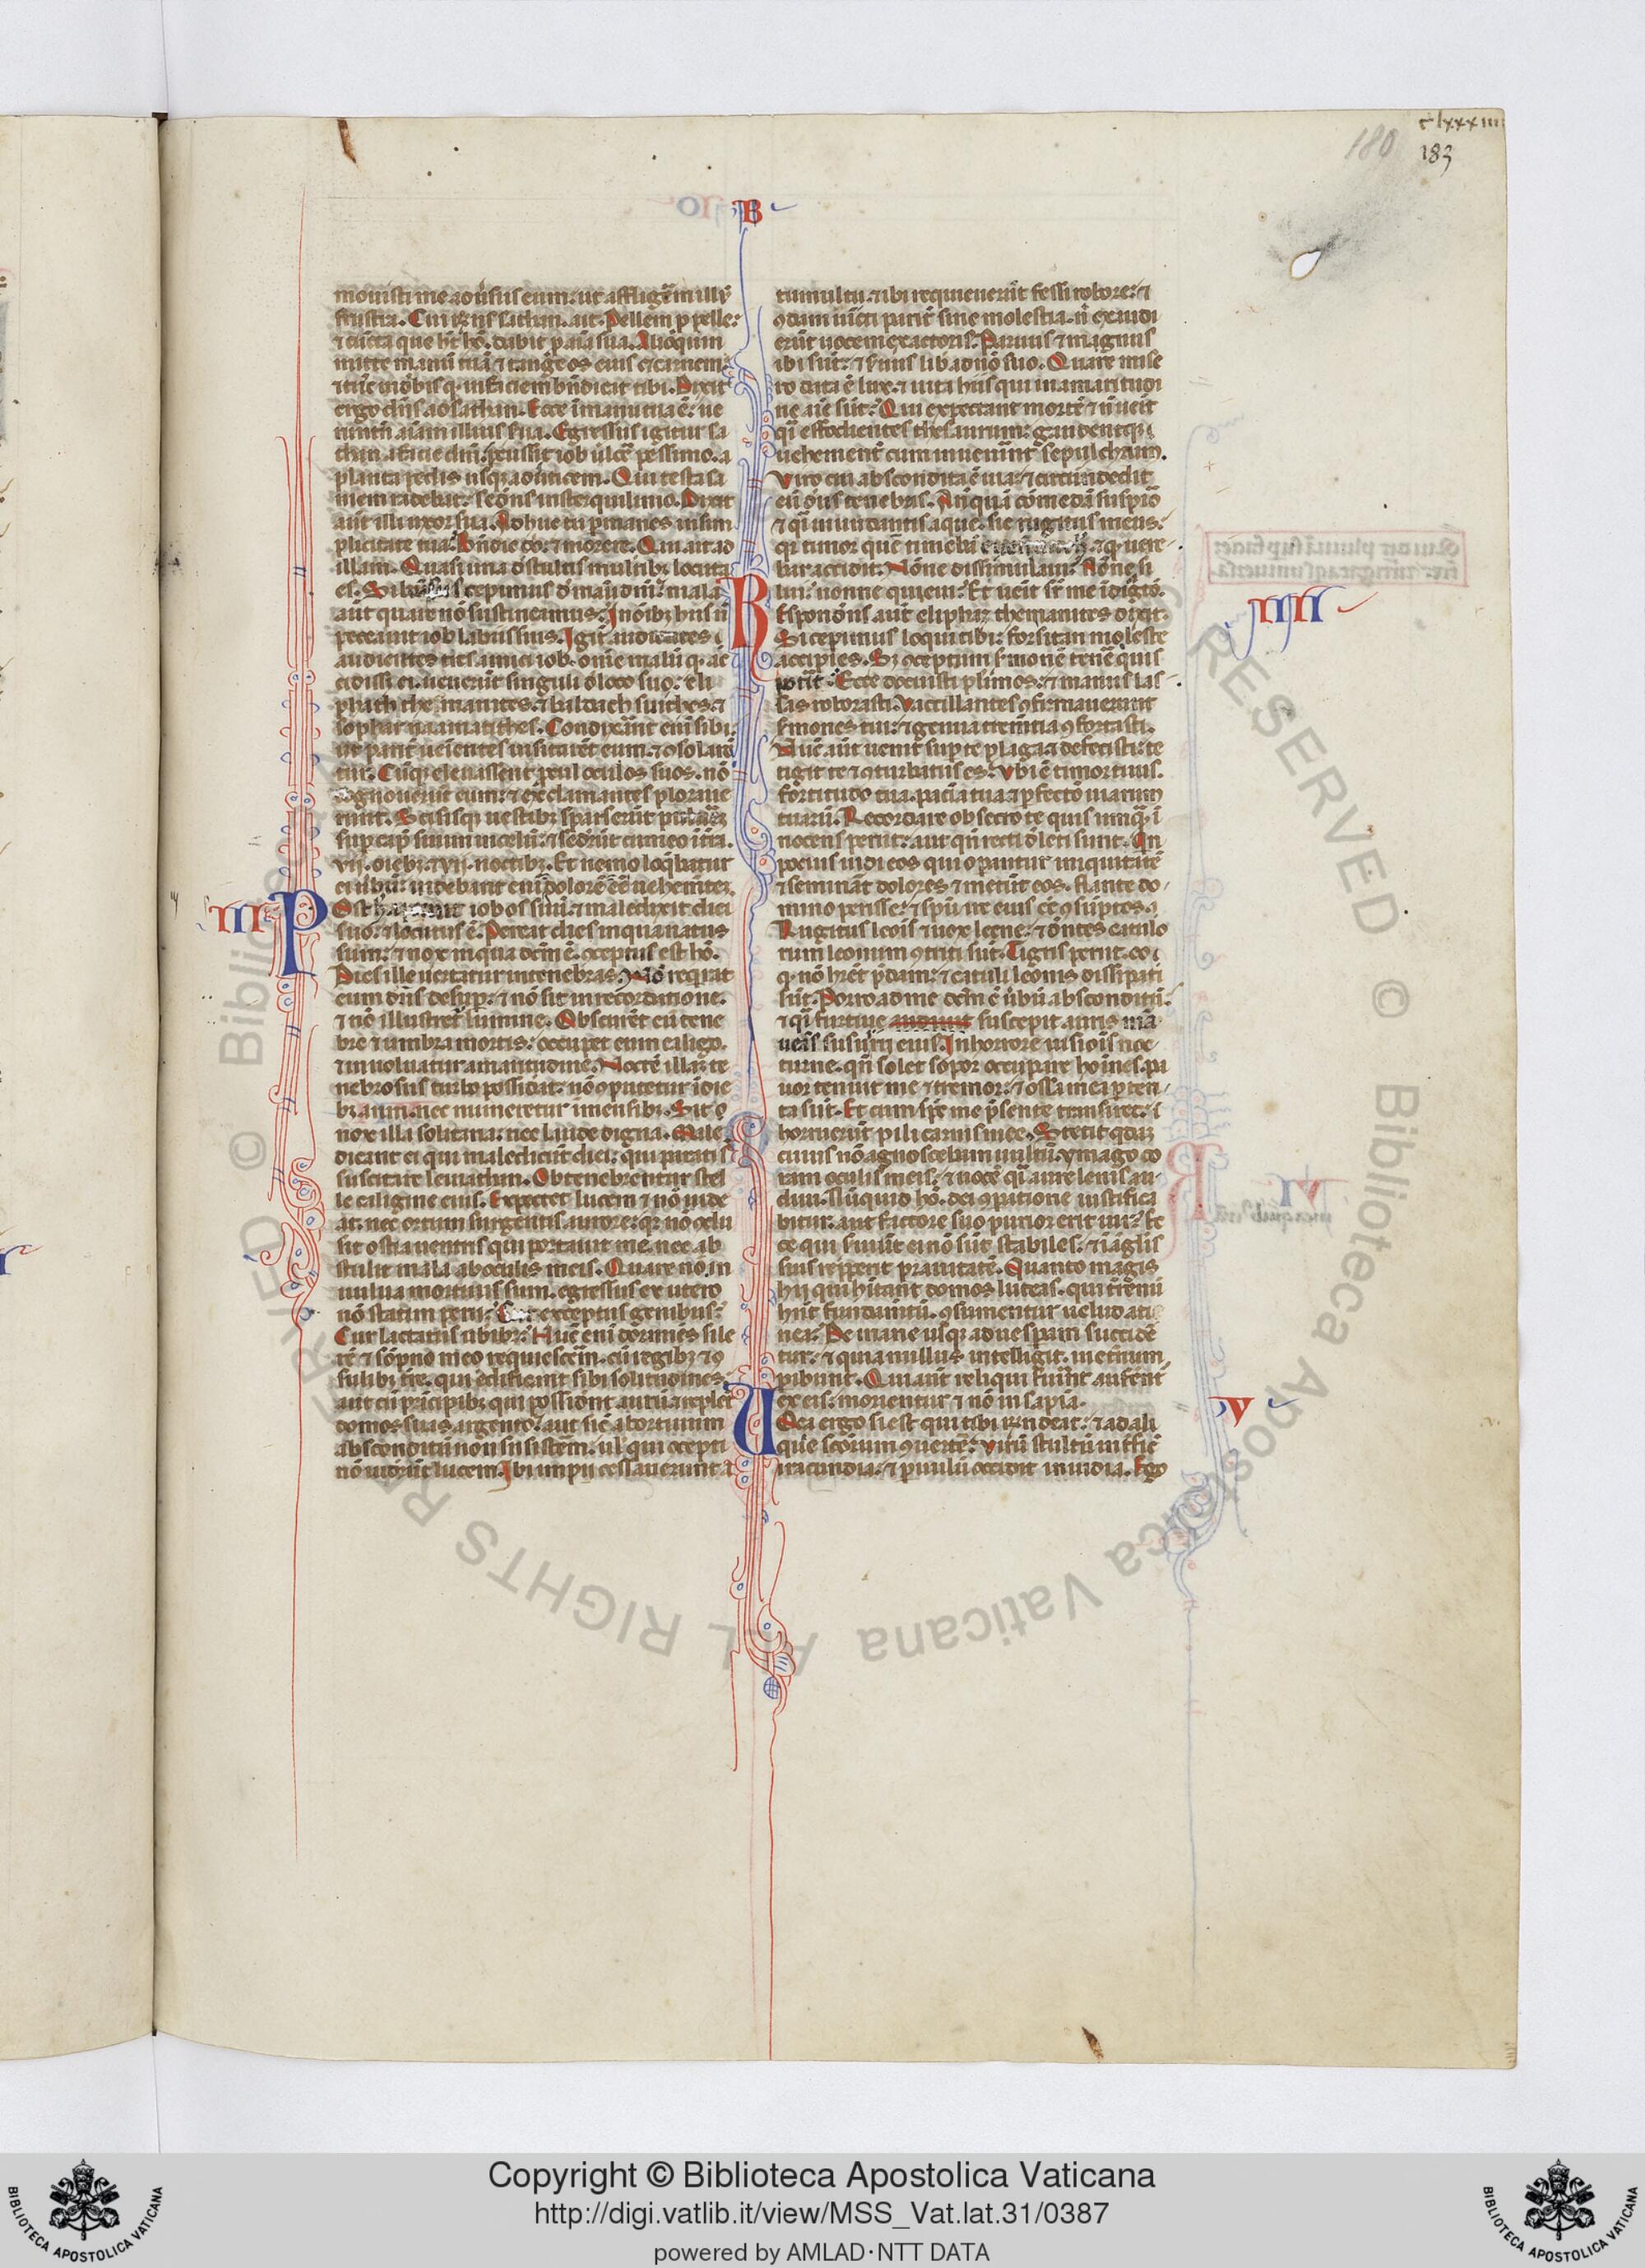 clxxxiiii
180
183
B
mouisti me aduersus eum. ut affligerem illum
frustra. Cui respondens sathan. ait. Pellem pro pelle:
et cuncta que habet homo. dabit pro anima sua. Alioquin
mitte manum tuam et tange os eius et carnem:
et tunc uidebis quod in faciem benedicat tibi. Dixit
ergo dominus ad sathan. Ecce in manu tua est: ue
runtamen animam illius serua. Egressus igitur sa
than a facie domini. percussit iob ulcere pessimo. a
planta pedis usque ad uerticem. Qui testa sa
niem radebat: sedens in sterquilinio. Dixit
autem illi uxor sua. Adhuc tu permanes in sim
plicitate tua. Benedic deo: et morere. Qui ait ad
illam. Quasi una de stultis mulieribus locuta
es. Si bona suscepimus de manu domini: mala
autem quare non sustineamus. In omnibus hiis non
peccauit iob labiis suis. Igitur
audientes tres amici iob. omne malum quod ac
cidisset ei. uenerunt singuli de loco suo: eli
phath themanites. et baldach suithes. et
sophar naamatithes. Condixerant enim sibi.
ut pariter uenientes uisitarent eum. et consolaren
tur. Cumque eleuassent procul oculos suos. non
cognouerunt eum: et exclamantes ploraue
runt. Scissisque uestibus sparserunt puluerem
super caput suum in celum: et sederunt cum eo in terra.
vii. diebus et vii. noctibus. Et nemo loquebatur
ei uerbum: uidebant enim dolorem esse uehementer.
III
Post hec aperuit iob os suum. et maledixit diei
suo: et locutus est. Pereat dies in qua natus
sum: et nox in qua dictum est. conceptus est homo.
Dies ille uertatur in tenebras. Non requirat
eum deus desuper. et non sit in recordatione.
et non illustretur lumine. Obscurent eum tene
bre et umbra mortis: occupet eum caligo.
et inuoluatur amaritudine. Noctem illam te
nebrosus turbo possideat: non computetur in die
bus anni. nec numeretur in mensibus. Sit
nox illa solitaria: nec laude digna. Male
dicant ei qui maledicunt diei: qui parati sunt
suscitare leuiathan. Obtenebrentur stel
le caligine eius. Expectet lucem et non uide
at. nec ortum surgentis aurore: quia non conclu
sit ostia uentris qui portauit me. nec ab
stulit mala ab oculis meis. Quare non in
uulua mortuus sum. egressus ex utero
non statim perii: Cur exceptus genibus:
Cur lactatus uberibus: Nunc enim dormiens sile
rem et sompno meo requiescerem. cum regibus et con
sulibus terre. qui edificant sibi solitudines:
aut cum principibus qui possident aurum. et replent
domos suas argento: aut sicut abortiuum
absconditum non subsisterem. uel qui concepti
non uiderunt lucem. Ibi impii cessauerunt a
tumultu. et ibi requieuerunt fessi robore: et
quondam uincti pariter sine molestia. non exaudi
erunt uocem exactoris. Paruus et magnus
ibi sunt: et seruus liber a domino suo. Quare mise
ro data est lux. et uita hiis qui in amaritudi
ne anime sunt: Qui expectant mortem et non uenit
quasi effodientes thesaurum: gaudentque
uehementer cum inuenerint sepulchrum.
Viro cui abscondita est uia: et circumdedit
eum deus tenebris. Antequam comedam suspiro
et quasi inundantis aque. sic rugitus meus:
quia timor quem timebam euenit michi. et quod uere
bar accidit. Nonne dissimulaui: Nonne si
lui: nonne quieui: Et uenit super me indignatio.
IIII
Respondens autem eliphaz themanites dixit.
Si ceperimus loqui tibi: forsitan moleste
accipies. Sed conceptum sermonem tenere quis
poterit: Ecce docuisti plurimos. et manus las
sas roborasti. Vaccillantes confirmauerunt
sermones tui: et genua trementia confortasti.
Nunc autem uenit super te plaga et defecisti: te
tigit te et conturbatus es. Vbi est timor tuus.
fortitudo tua. patientia tua. et perfectio uiarum
tuarum. Recordare obsecro te quis umquam in
nocens periit: aut quando recti deleti sunt. Quin
pocius uidi eos qui operantur iniquitatem
et seminant dolores et metunt eos. flante do
mino perisse: et spiritu ire eius esse consumptos.
Rugitus leonis et uox leene: et dentes catulo
rum leonum contriti sunt. Tigris periit. eo
quod non haberet predam: et catuli leonis dissipati
sunt. Porro ad me dictum est uerbum absconditum:
et quasi furtiue suscepit auris mea
uenas susurri eius. In horrore uisionis noc
turne. quando solet sopor occupare homines. pa
uor tenuit me et tremor: et ossa mea perterri
ta sunt. Et cum spiritus me presente transiret:
horruerunt pili carnis mee. Stetit quidam
cuius non agnoscebam uultum. ymago co
ram oculis meis: et uocem quasi aure lenis au
diui. Numquid homo. dei comparatione iustifica
bitur: aut factore suo purior erit uir: Ec
ce qui seruiunt ei non sunt stabiles. et in angelis
suis reperit prauitatem. Quanto magis
hii qui habitant domos luteas. qui terrenum
habent fundamentum. consumentur uelud a ti
nea: De mane usque ad uesperam succiden
tur: et quia nullus intelligit. in eternum
peribunt. Qui autem reliqui fuerint auferentur
ex eis: morientur et non in sapientia.
V
Uoca ergo si est qui tibi respondeat: et ad ali
quem sanctorum conuertere: Virum stultum interficit
iracundia: et paruulum occidit inuidia. Ego
Copyright © Biblioteca Apostolica Vaticana
http://digi.vatlib.it/view/MSS_Vat.lat.31/0387
powered by AMLAD·NTT DATA
BIBLIOTECA APOSTOLICA VATICANA
BIBLIOTECA APOSTOLICA VATICANA
Biblioteca Apostolica Vaticana © ALL RIGHTS RESERVED ©